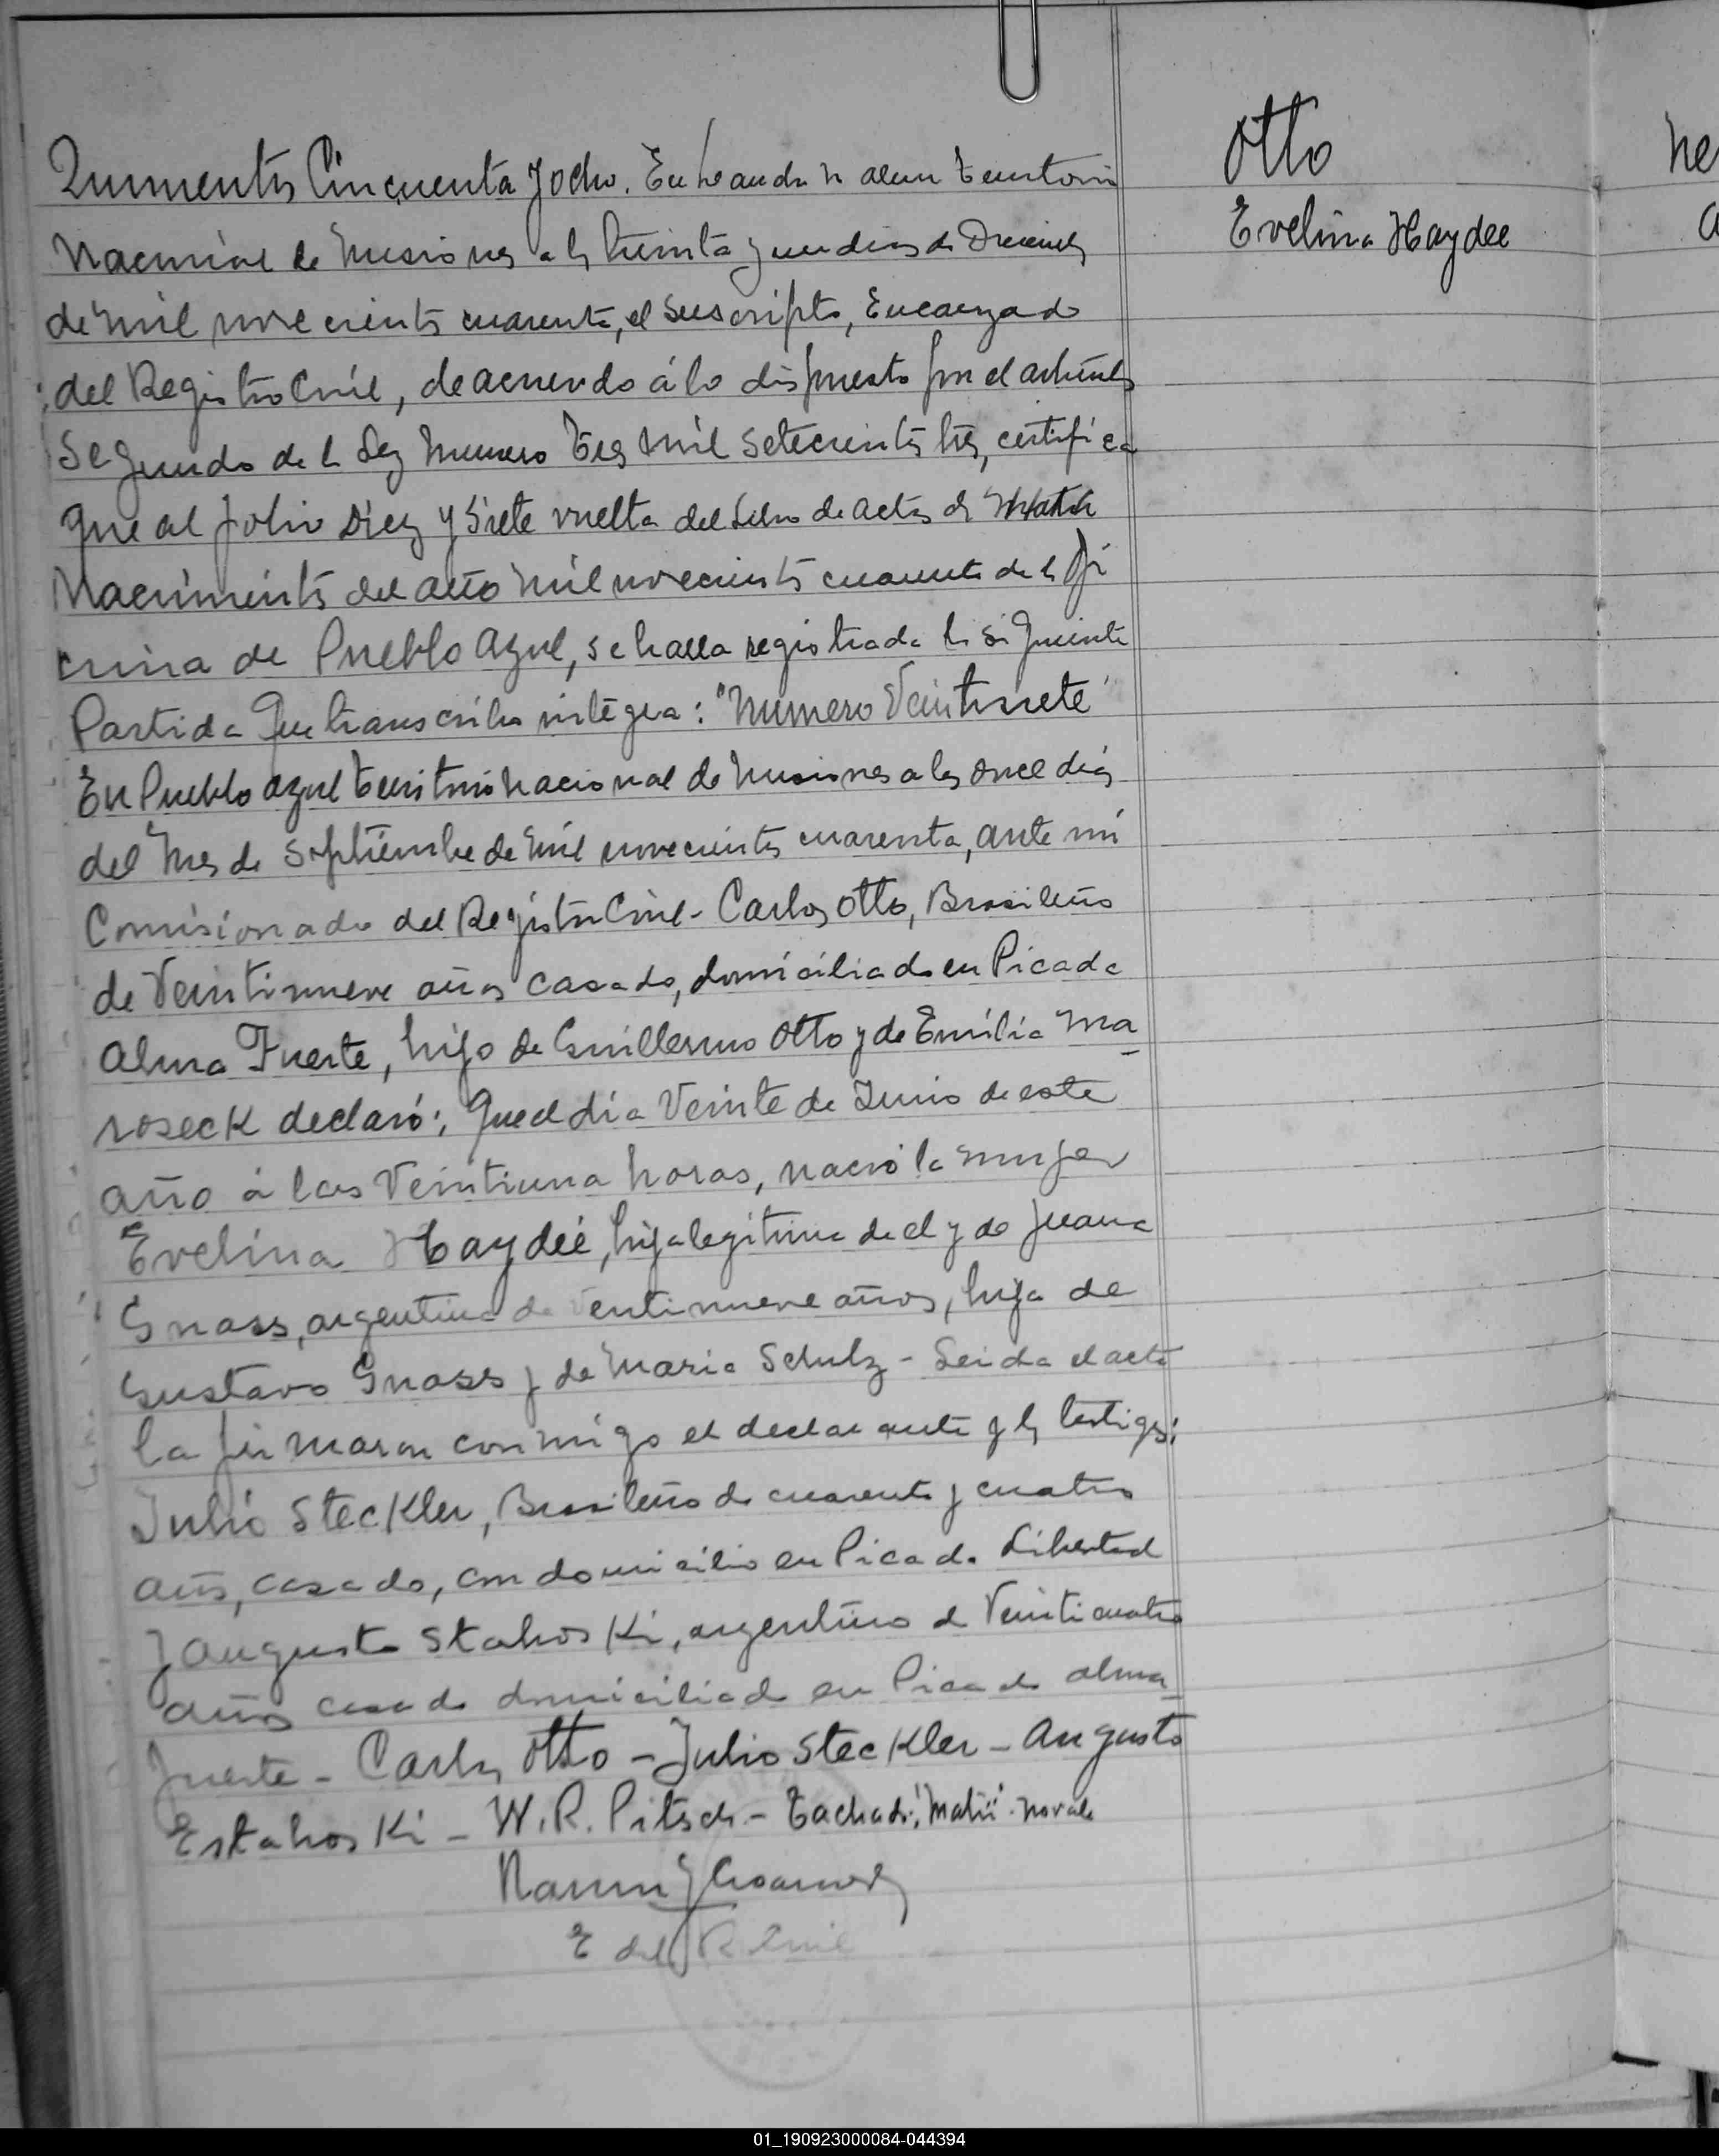 Quinientos Cincuenta y ocho. En Leandro N alem Territorio
Nacional de Misiones a los treinta y un dias de Diciembre
de mil novecientos cuarenta, el suscripto, Encargado
del Registro Civil, de acuerdo á lo dispuesto por el artículo
segundo de la Ley Numero Tres mil setecientos tres, certifica
que al folio Diez y Siete vuelta del Libro de actas de Matri
Nacimientos del año mil novecientos cuarenta de la Ofi
cina de Pueblo Azul, se halla registrada la siguiente
Partida que transcribo integra: "Numero Veintisiete"
En Pueblo azul Territorio Nacional de Misiones a los once dias
del mes de Septiembre de mil novecientos cuarenta, ante mi
Comisionado del Registro Civil - Carlos Otto, Brasileño
de Veintinueve años casado, domiciliado en Picada
Alma Fuerte, hijo de Guillermo Otto y de Emilia Ma
roseck declaró: Que el día Veinte de Junio de este
año á las Veintiuna horas, nació la mujer
Evelina Haydée, hija legitima de el y de Juana
Gnass, argentina de Ventinueve años, hija de
Gustavo Gnass y de Maria Schulz - Leida el acta
la firmaron conmigo el declarante y los testigos:
Julio Steckler, Brasileño de cuarenta y cuatro
años, casado, con domicilio en Picada Libertad
y Augusto Stahoski, argentino de Veinticuatro
años casado domiciliado en Picada alma
fuerte - Carlos Otto - Julio Steckler - Augusto
Estahoski - W. R. Pitsch - Tachado: "Matri" - no vale
E del R Civil
Otto
Evelina Haydee
01_190923000084-044394